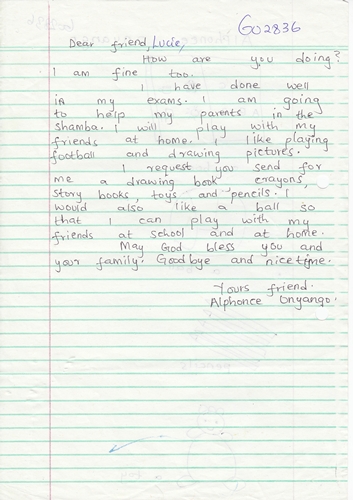 GO2836
Dear friend, Lucie,
How are you doing?
I am fine too.
I have done well
in my exams. I am going
to help my parents in the
shamba. I will play with my
friends at home. I like playing
football and drawing pictures.
I request you send for
me a drawing book crayons,
story books, toys and pencils. I
would also like a ball so
that I can play with my
friends at school and at home.
May God bless you and
your family. Goodbye and nice time.
Yours friend.
Alphonce Onyango.